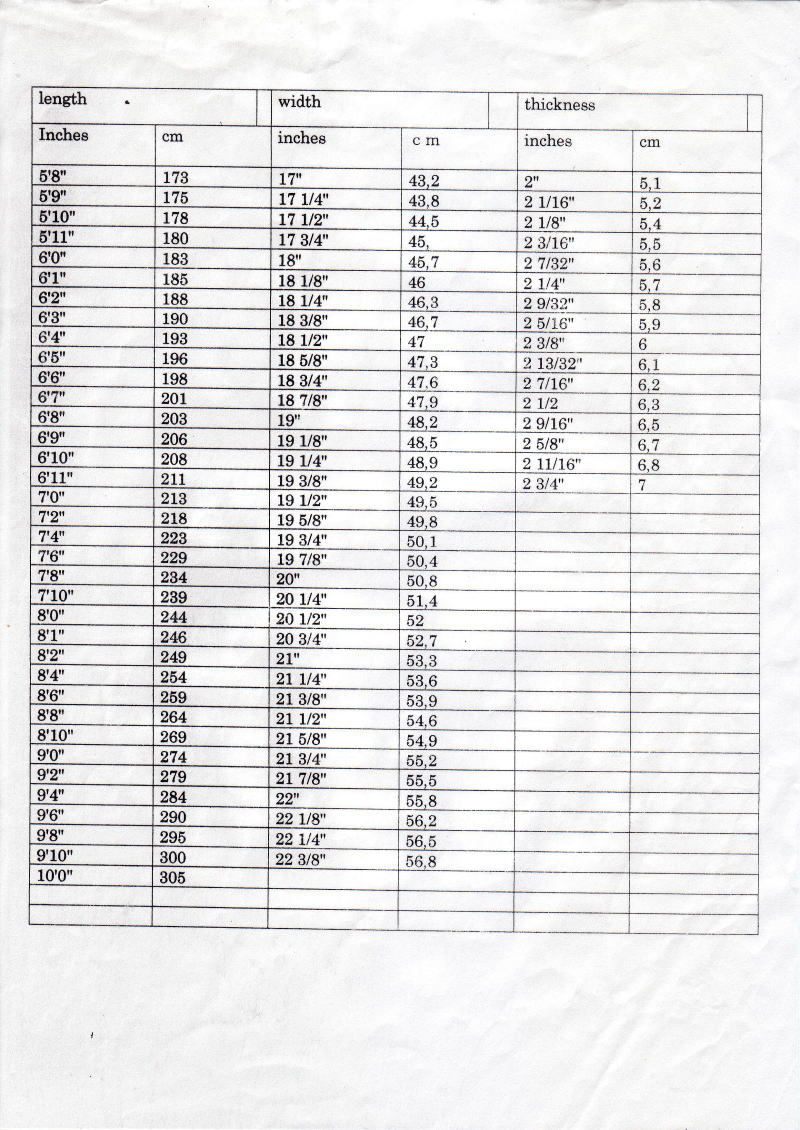 length width thickness
Inches cm inches c m inches cm
5'8" 173 17" 43,2 2" 5,1
5'9" 175 17 1/4" 43,8 2 1/16" 5,2
5'10" 178 17 1/2" 44,5 2 1/8" 5,4
5'11" 180 17 3/4" 45, 2 3/16" 5,5
6'0" 183 18" 45,7 2 7/32" 5,6
6'1" 185 18 1/8" 46 2 1/4" 5,7
6'2" 188 18 1/4" 46,3 2 9/32" 5,8
6'3" 190 18 3/8" 46,7 2 5/16" 5,9
6'4" 193 18 1/2" 47 2 3/8" 6
6'5" 196 18 5/8" 47,3 2 13/32" 6,1
6'6" 198 18 3/4" 47,6 2 7/16" 6,2
6'7" 201 18 7/8" 47,9 2 1/2 6,3
6'8" 203 19" 48,2 2 9/16" 6,5
6'9" 206 19 1/8" 48,5 2 5/8" 6,7
6'10" 208 19 1/4" 48,9 2 11/16" 6,8
6'11" 211 19 3/8" 49,2 2 3/4" 7
7'0" 213 19 1/2" 49,5
7'2" 218 19 5/8" 49,8
7'4" 223 19 3/4" 50,1
7'6" 229 19 7/8" 50,4
7'8" 234 20" 50,8
7'10" 239 20 1/4" 51,4
8'0" 244 20 1/2" 52
8'1" 246 20 3/4" 52,7
8'2" 249 21" 53,3
8'4" 254 21 1/4" 53,6
8'6" 259 21 3/8" 53,9
8'8" 264 21 1/2" 54,6
8'10" 269 21 5/8" 54,9
9'0" 274 21 3/4" 55,2
9'2" 279 21 7/8" 55,5
9'4" 284 22" 55,8
9'6" 290 22 1/8" 56,2
9'8" 295 22 1/4" 56,5
9'10" 300 22 3/8" 56,8
10'0" 305